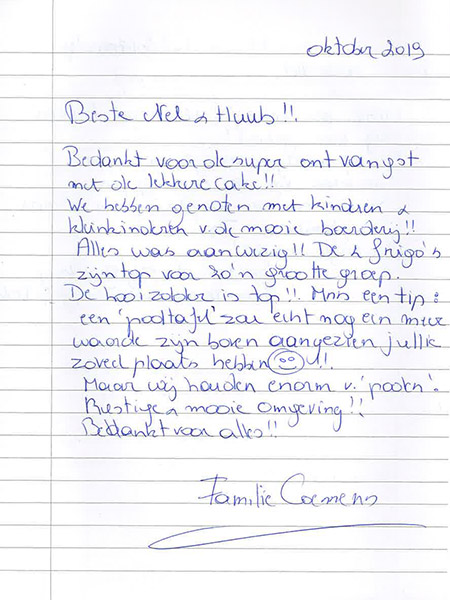 oktober 2019
Beste Nel & Huub!!
Bedankt voor de super ontvangst
met de lekkere cake!!
We hebben genoten met kinderen &
kleinkinderen v. de mooie boerderij!!
Alles was aanwezig!! De 2 frigo's
zijn top voor zo'n grootte groep.
De hooizolder is top!! Mss een tip:
een 'pooltafel' zou echt nog een meer
waarde zijn boven aangezien jullie
zoveel plaats hebben !!
Maar wij houden enorm v. 'poolen'.
Rustige & mooie omgeving!!
Bedankt voor alles!!
Familie Coemens